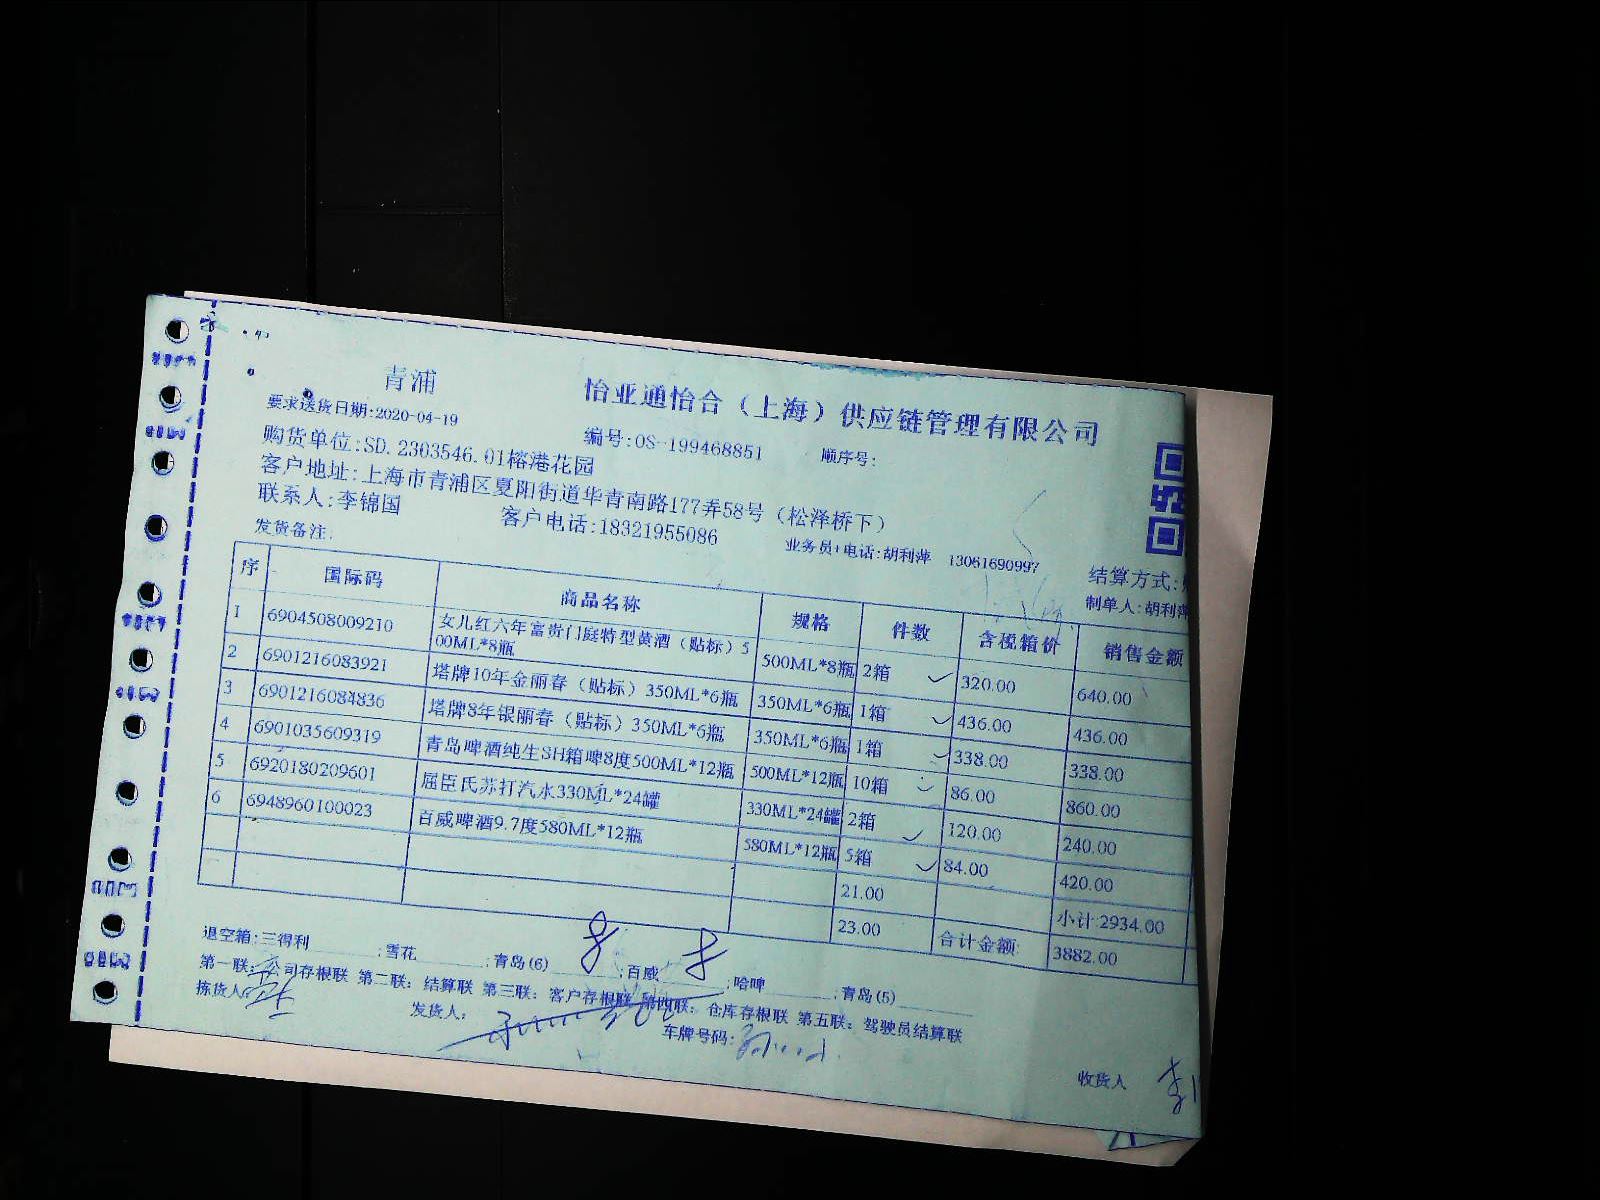 青浦
怡亚通怡合（上海）供应链管理有限公司
要求送货日期:2020-04-19
编号:OS-199468851
顺序号:
购货单位:SD.2303546.01榕港花园
客户地址:上海市青浦区夏阳街道华青南路177弄58号（松泽桥下）
联系人:李锦国
客户电话:18321955086
业务员+电话:胡利萍 13061690997
结算方式:
发货备注:
制单人:胡利萍
序 国际码 商品名称 规格 件数 含税箱价 销售金额
1 6904508009210 女儿红六年富贵门庭特型黄酒（贴标）500ML*8瓶 500ML*8瓶 2箱 320.00 640.00
2 6901216083921 塔牌10年金丽春（贴标）350ML*6瓶 350ML*6瓶 1箱 436.00 436.00
3 6901216084836 塔牌8年银丽春（贴标）350ML*6瓶 350ML*6瓶 1箱 338.00 338.00
4 6901035609319 青岛啤酒纯生SH箱啤8度500ML*12瓶 500ML*12瓶 10箱 86.00 860.00
5 6920180209601 屈臣氏苏打汽水330ML*24罐 330ML*24罐 2箱 120.00 240.00
6 6948960100023 百威啤酒9.7度580ML*12瓶 580ML*12瓶 5箱 84.00 420.00
21.00 小计:2934.00
23.00 合计金额: 3882.00
退空箱:三得利 ;雪花 ;青岛(6) ;百威 ;哈啤 ;青岛(5)
第一联:公司存根联 第二联:结算联 第三联:客户存根联 第四联:仓库存根联 第五联:驾驶员结算联
拣货人:
发货人:
车牌号码:
收货人 李